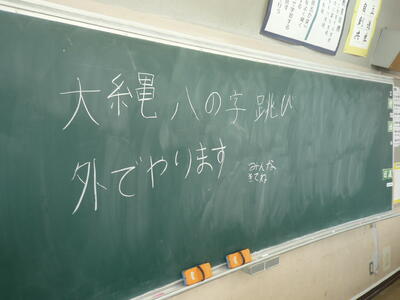 大縄 八の字跳び
外でやります
みんな
きてね